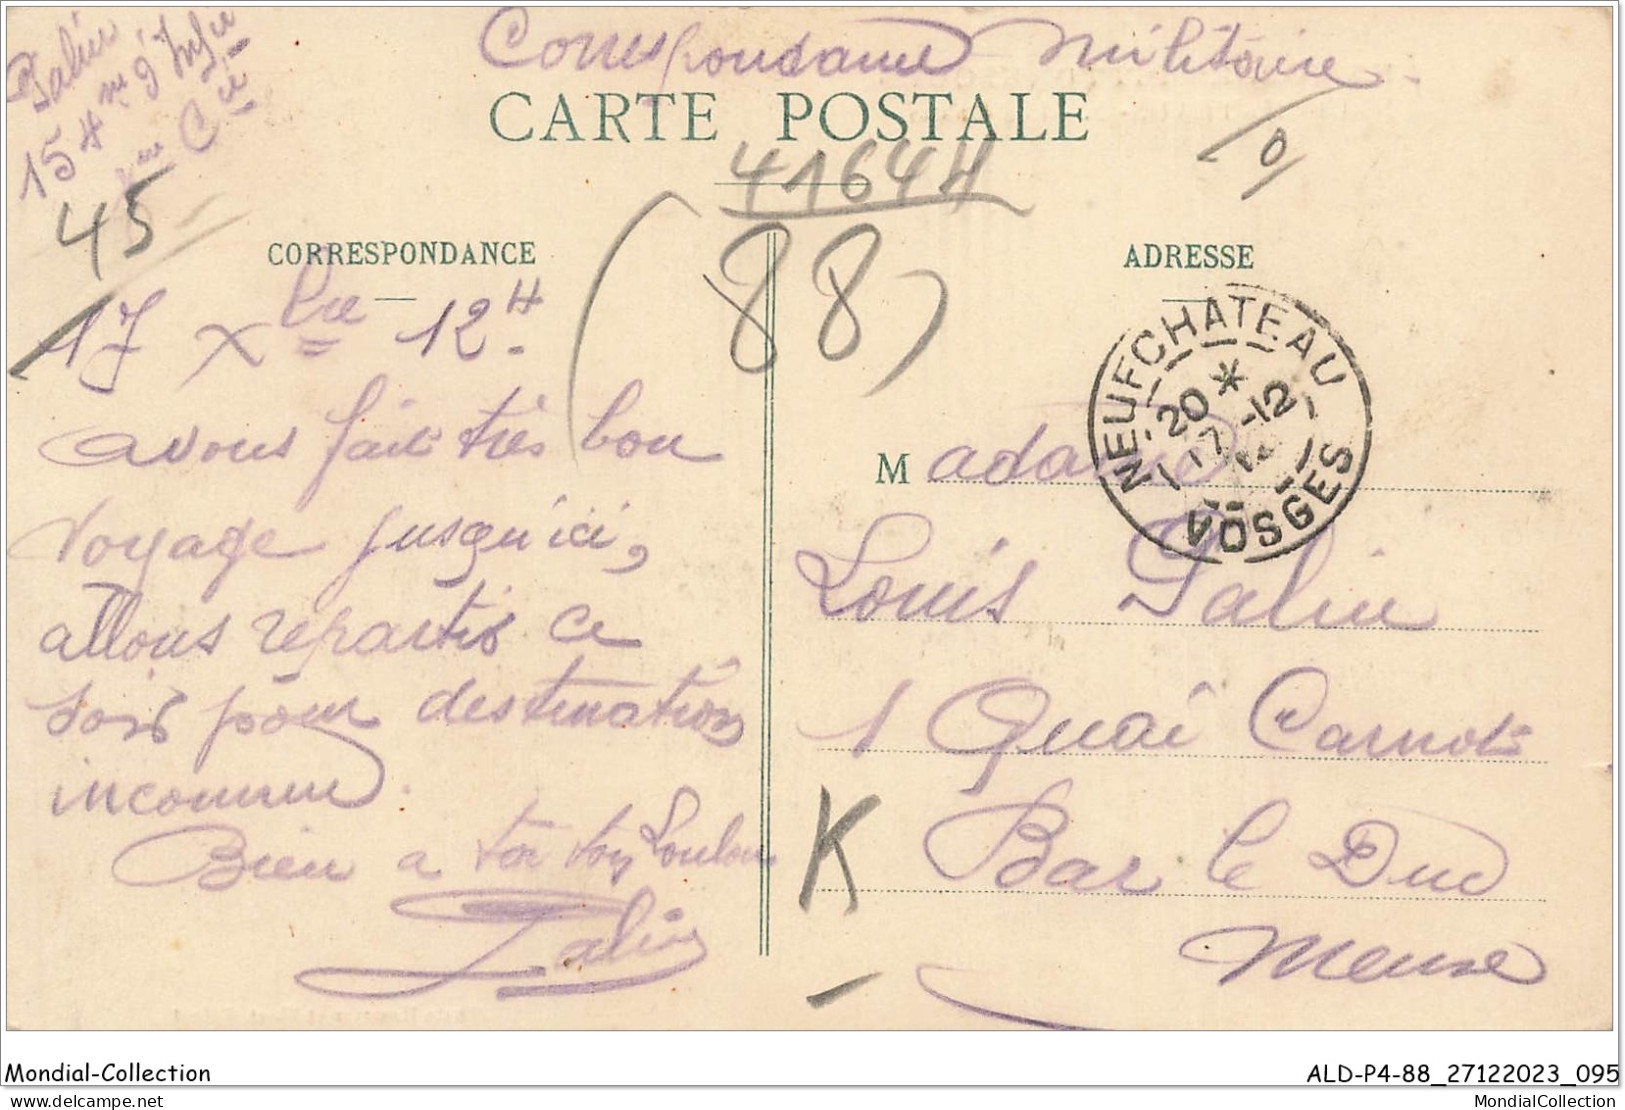 Correspondance Militaire
Galin
154me d'Infie
Cie
CARTE POSTALE
41644
45
(88)
0
CORRESPONDANCE
ADRESSE
17 Xbre 12H
avons fait très bon
voyage jusqu'ici,
allons repartir ce
soir pour destination
inconnue.
Bien a toi ton Loulou
Galin
NEUFCHATEAU
20*
17-12
VOSGES
Madame
Louis Galin
1 Quai Carnot
Bar le Duc
Meuse
K
Mondial-Collection
ALD-P4-88_27122023_095
delcampe.net
MondialCollection